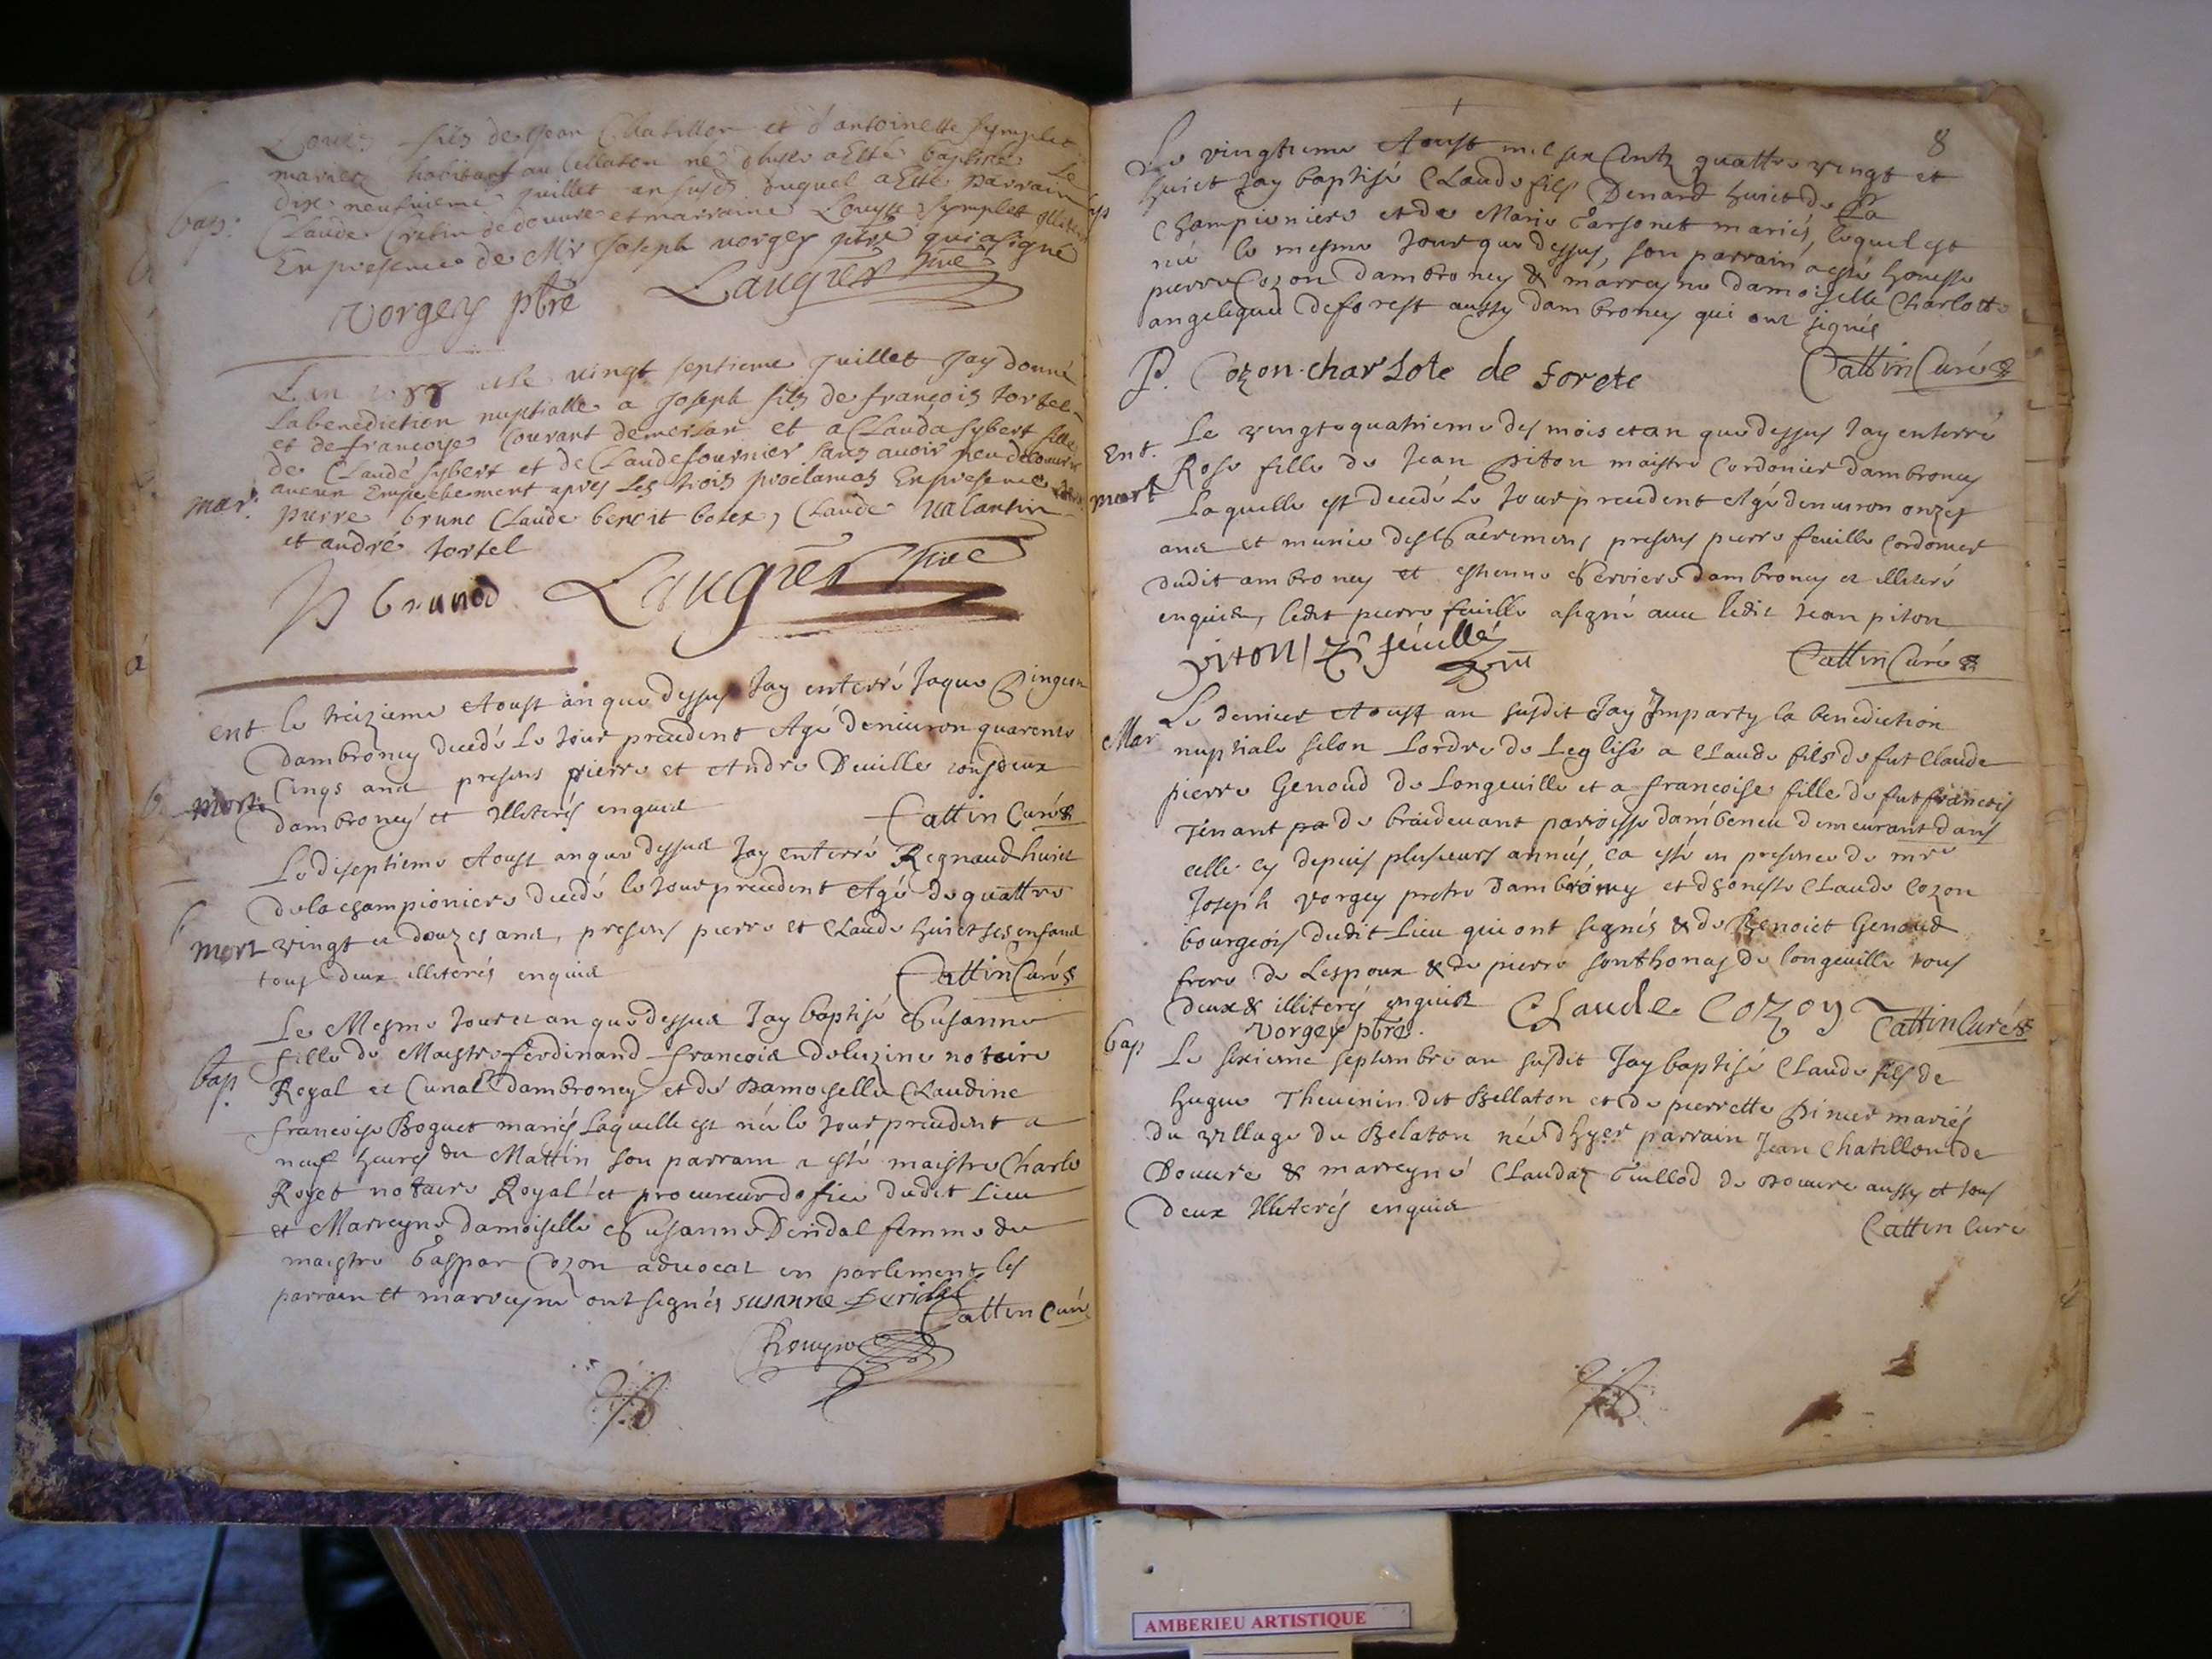 Louis fils de Jean Chatillon et d'antoinette symplet
mariez habitant au bellaton né d'hyer a Esté baptisé Le
dix neufvieme juillet an susdit duquel a Esté parrain
bap. Claude Cretin de douvre et marraine Louyse symplet
En presence de Mre Joseph vorgey ptre qui a signé
vorgey ptre Laugier vire
L'an 1688 et le vingt septieme juillet Jay donné
La benediction nuptialle a Joseph fils de françois tortel
et de francoyse Courant et a Clauda sybert fille
de Claude sybert et de Claude fournier sans avoir peu decouvrir
aucun Empechement apres Les trois proclamas En presence
mar. pierre brunc Claude benoit Claude valantin
et andré tortel
P brunod Laugier vire
ent le treizieme Aoust an que dessus Jay enterré Jaque pingeon
dambroney decedé Le Jour precedent Agé denuiron quarente
Cinqs ans presens pierre et Andre Deuille tous deux
mort dambroney et illiterés enquis Cattin Curé
Le diseptieme Aoust an que dessus Jay enterré Regnaud huiet
de la championiere decedé le Jour precedent Agé de quattre
mort vingt et douzes ans, presens pierre et Claude huiet ses enfans
tous deux illiterés enquis Cattin Curé
Le Mesme Jour et an que dessus Jay baptisé Susanne
fille de Maistre ferdinand francois deluzine notaire
bap. Royal et Curial dambroney et de Damoiselle Claudine
francoise Boguet mariés Laquelle est née le Jour precedent a
neuf heures du Mattin son parrain a esté maistre Charle
Royet notaire Royal et procureur dofice dudit Lieu
et Marreyne damoiselle Susanne Deridal femme de
maistre Gaspar Cozon advocat en parlement les
parrain et marreyne ont signés susanne Deridal Cattin Curé
8
Le vingtieme Aoust mil six Centz quattre vingt et
huict Jay baptisé Claude fils Denard huiet de La
Championiere et de Marie mariés, lequel est
né le mesme Jour que dessus, son parrain a esté honeste
pierre Cozon dambroney & marreyne damoiselle Charlotte
angelique deforest aussy dambroney qui ont signés
P. Cozon charlote de forete Cattin Curé
Ent. Le vingt quatrieme des mois et an que dessus Jay enterré
Rose fille de Jean piton maistre Cordonier dambroney
mort Laquelle est decedé Le Jour precedent Agé denuiron onzes
ans et munie des Sacremens presens pierre feuille Cordonier
dudit ambroney et estienne Serviere dambroney et illiteré
enquis, ledit pierre feuille a signé auec ledit Jean piton
piton P feuille Cattin Curé
Mar Le dernier Aoust an susdit Jay Imparty la benediction
nuptiale selon Lordre de Leglise a Claude fils de fut Claude
pierre Genoud de Longeuille et a francoise fille de fut francois
Tenant de paroisse dambeneu demeurant dans
celle cy depuis plusieurs années, ca esté en presence de mre
Joseph vorgey pretre dambroney et dhoneste Claude Cozon
bourgeois dudit Lieu qui ont signés & de Benoict Genoud
frere de Lespoux & de pierre sonthonas de longeuille tous
deux & illiterés enquis Claude Cozon Cattin Curé
vorgey ptre.
bap Le sixieme septembre an susdit Jay baptisé Claude fils de
hugue Theuenin dit Bellaton et de pierrette mariés
du village du Belaton né dhyer parrain Jean Chatillon de
Douure & marreyne Claudaz Guillod de Douure aussy et tous
deux Illiterés enquis
Cattin Curé
AMBERIEU ARTISTIQUE